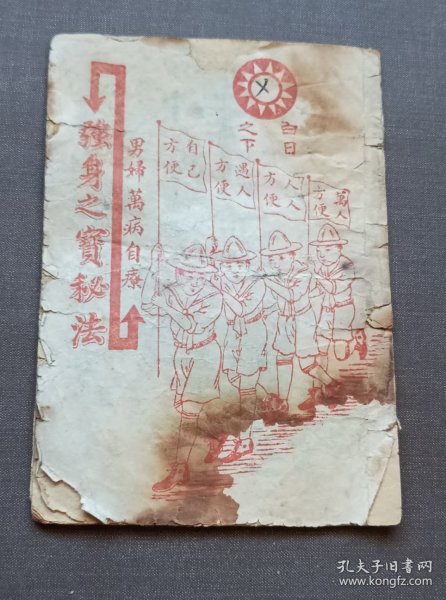 強身之寶秘法
男婦萬病自療
白日
之下
自己
方便
遇人
方便
人人
方便
萬人
方便
孔夫子旧书网
www.kongfz.com